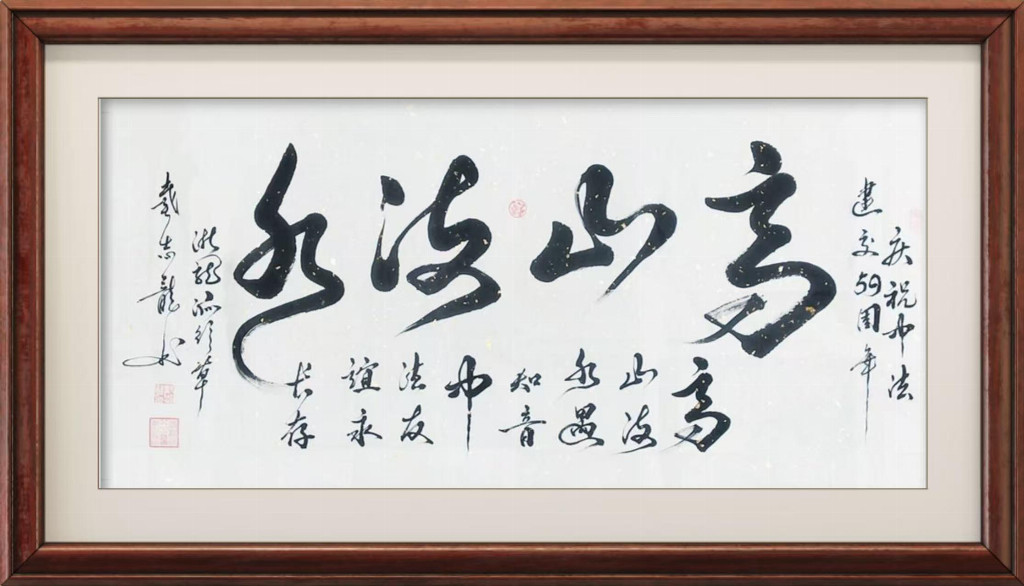 庆祝中法
建交59周年
高山流水
高
山流
水遇
知音
中
法友
誼永
长存
行草
戴志龍书